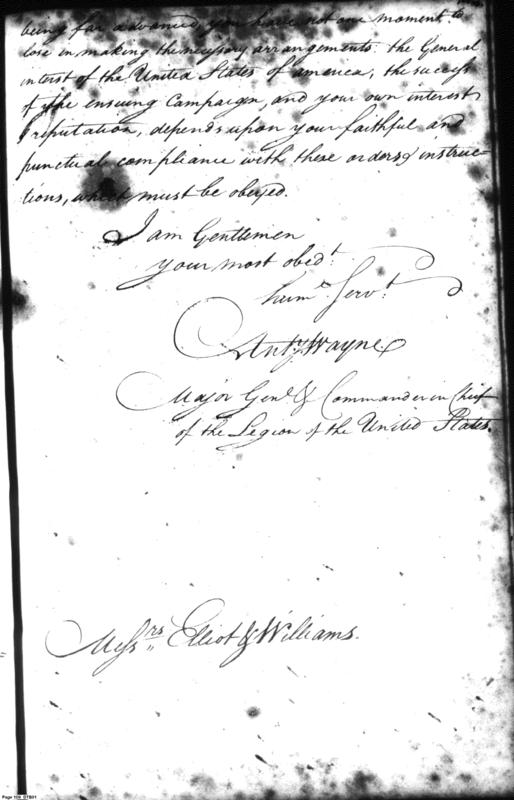 being far advanced, you have not one moment to
lose in making the necessary arrangements: the General
interest of the United States of america, the success
of the ensuing Campaign, and your own interest
& reputation, depends upon your faithful and
punctual compliance with these orders & instruc-
tions, which must be obeyed.
I am Gentlemen
your most obedt.
humе Servt.
Anty. Wayne
Major Genl. & Commander in Chief
of the Legion of the United States.
Messrs. Elliot & Williams.
Page 109 DTB01